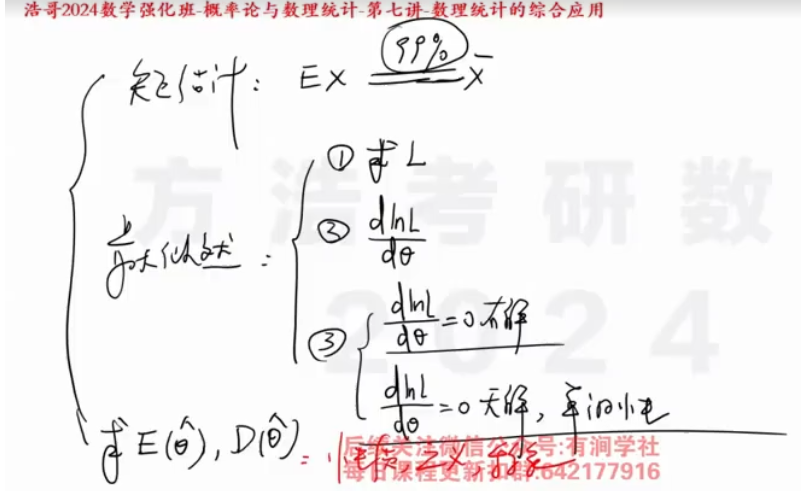 浩哥2024数学强化班-概率论与数理统计-第七讲-数理统计的综合应用
矩估计: EX 99% X̄
最大似然:
① 求 L
② dlnL/dθ
③ dlnL/dθ = 0 有解
dlnL/dθ = 0 无解,
求 E(θ̂), D(θ̂) =
方浩考研数
2024
后续关注微信公众号:有涧学社
每日课程更新扣群:642177916